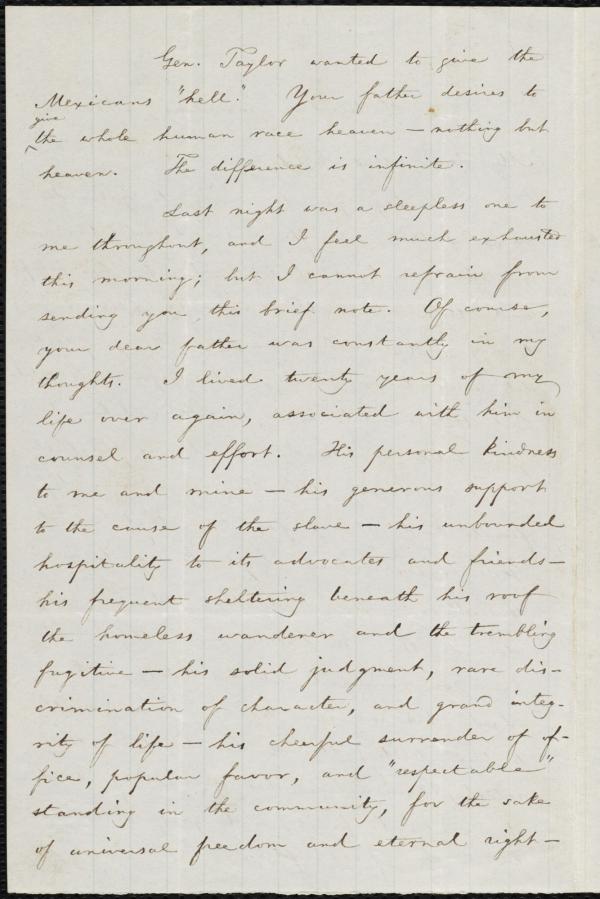 Gen. Taylor wanted to give the
Mexicans "hell." Your father desires to
give
the whole human race heaven — nothing but
heaven. The difference is infinite.
Last night was a sleepless one to
me throughout, and I feel much exhausted
this morning; but I cannot refrain from
sending you this brief note. Of course,
your dear father was constantly in my
thoughts. I lived twenty years of my
life over again, associated with him in
counsel and effort. His personal kindness
to me and mine — his generous support
to the cause of the slave — his unbounded
hospitality to its advocates and friends —
his frequent sheltering beneath his roof
the homeless wanderer and the trembling
fugitive — his solid judgment, rare dis-
crimination of character, and grand integ-
rity of life — his cheerful surrender of of-
fice, popular favor, and "respectable"
standing in the community, for the sake
of universal freedom and eternal right —